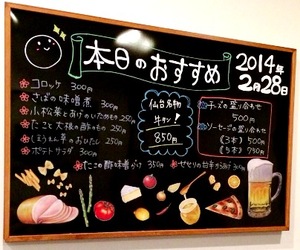 本日のおすすめ
2014年
2月28日
コロッケ 300円
さばの味噌煮 300円
小松菜とあげのいためもの 250円
たこと大根の酢のもの 250円
ほうれん草のおひたし 250円
ポテトサラダ 300円
たこの酢味噌 350円
仙台名物
牛タン!
850円
チーズの盛り合せ
500円
ソーセージの盛り合せ
(3本) 500円
(5本) 750円